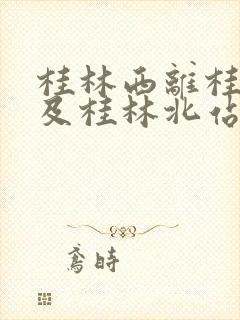 桂林西離桂
及桂林北佔
鳶時